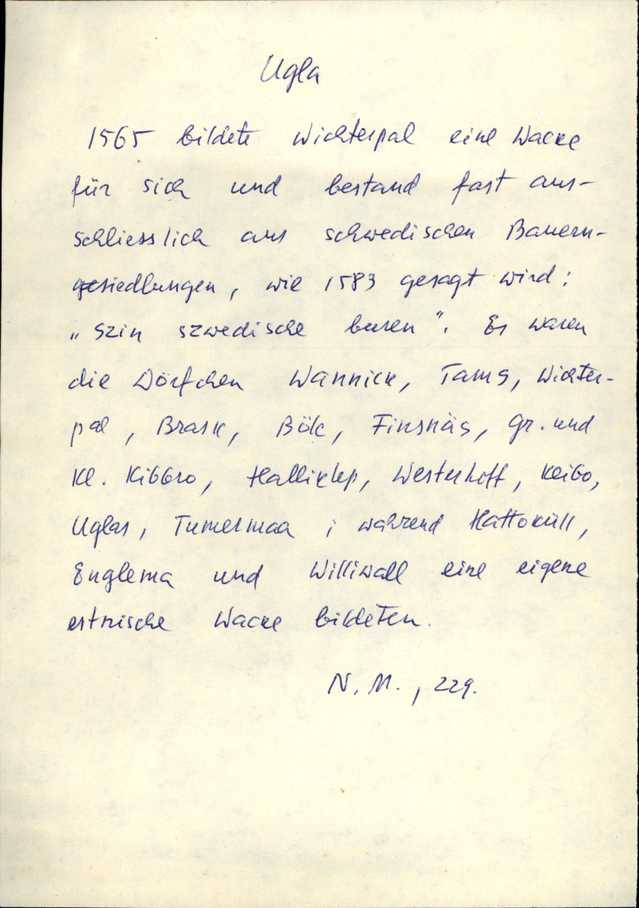 Ugla
1565 bildete Wichterpal eine Wacke
für sich und bestand fast aus-
schliesslich aus schwedischen Bauern-
siedlungen, wie 1583 gesagt wird:
„szin szwedische buren". Es waren
die Dörfchen Wannick, Tams, Wichter-
pal, Brask, Bök, Finsnäs, Gr. und
Kl. Kibbro, Halliklep, Westerhoff, Keibo,
Uglas, Tumermaa; während Hattoküll,
Englema und Williwall eine eigene
estnische Wacke bildeten.
N. M., 229.